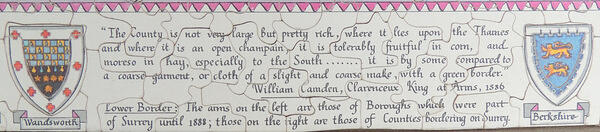 "The County is not very large but pretty rich, where it lies upon the Thames
and where it is an open champain, it is tolerably fruitful in corn, and
moreso in hay, especially to the South ....... it is by some compared to
a coarse garment, or cloth of a slight and coarse make, with a green border."
William Camden, Clarenceux King at Arms, 1586
Lower Border: The arms on the left are those of Boroughs which were part
of Surrey until 1888; those on the right are those of Counties bordering on Surrey.
Wandsworth
Berkshire